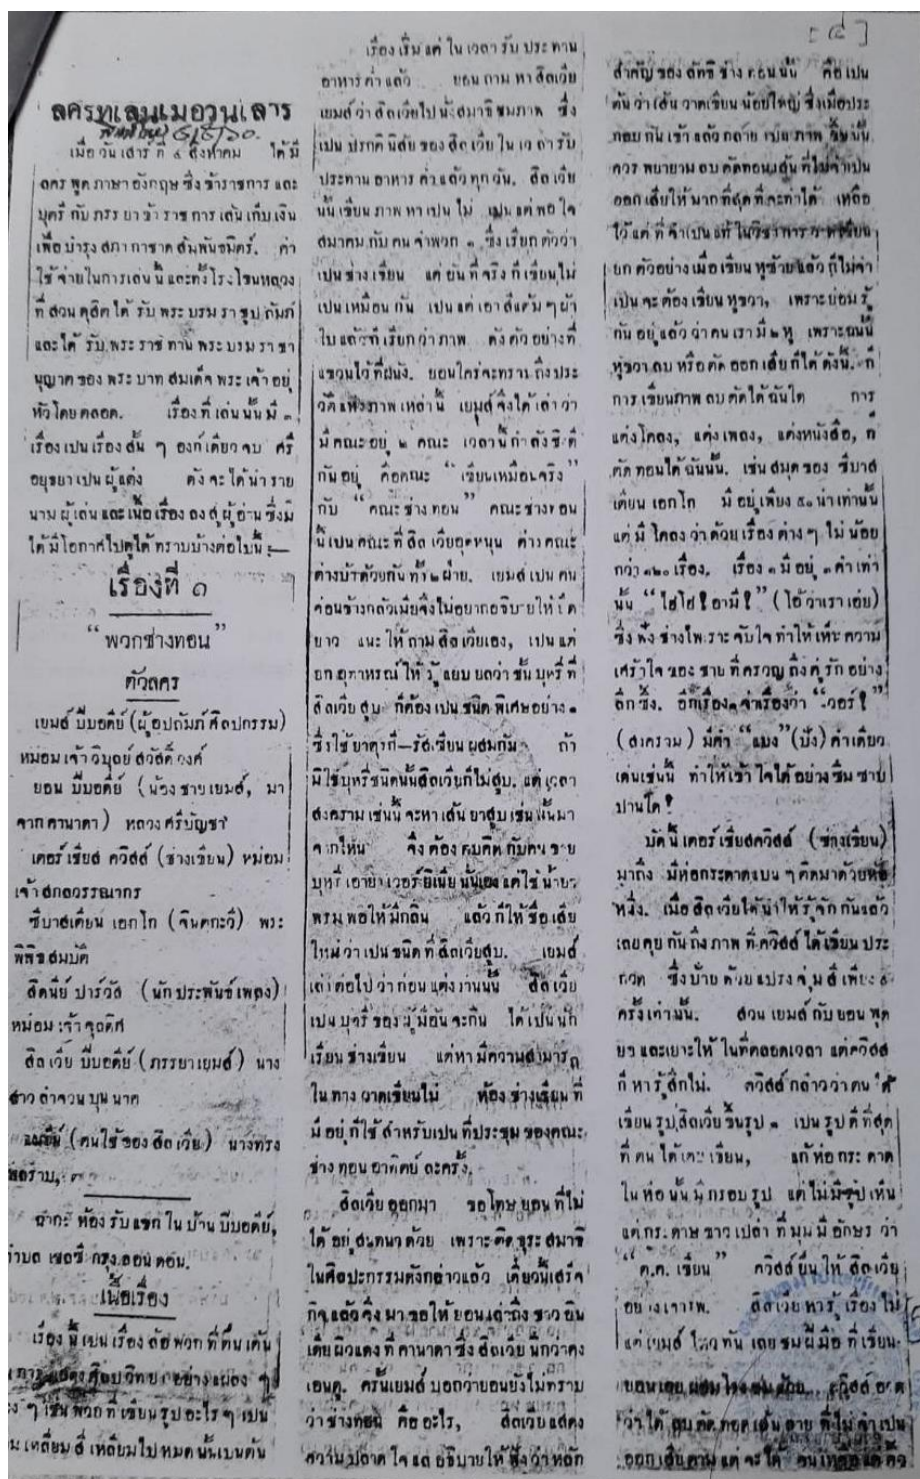 [๔]
ลครทเลนเมอวนเสาร
เมื่อวันเสาร์ที่ ๔ สิงหาคม ได้มี
ลครพูดภาษาอังกฤษซึ่งข้าราชการและ
บุตรีกับภรรยาข้าราชการเล่นเก็บเงิน
เพื่อบำรุงสภากาชาดสัมพันธมิตร์. ค่า
ใช้จ่ายในการเล่นนี้และทั้งโรงโขนหลวง
ที่สวนดุสิตได้รับพระบรมราชูปถัมภ์
และได้รับพระราชทานพระบรมราชา
นุญาตของพระบาทสมเด็จพระเจ้าอยู่
หัวโดยตลอด. เรื่องที่เล่นนั้นมี ๓
เรื่องเปนเรื่องสั้น ๆ องก์เดียวจบ ศรี
อยุธยาเปนผู้แต่ง ดังจะได้นำราย
นามผู้เล่นและเนื้อเรื่องลงสู่ผู้อ่านซึ่งมิ
ได้มีโอกาศไปดูได้ทราบบ้างต่อไปนี้:—
เรื่องที่ ๑
“พวกช่างทอน”
ตัวลคร
เยมส์ บีบอดีย์ (ผู้อุปถัมภ์ศิลปกรรม)
หม่อมเจ้าวิบุลย์สวัสดิ์วงศ์
ยอน บีบอดีย์ (น้องชายเยมส์, มา
จากคานาดา) หลวงศรีบัญชา
เตอร์เชียส ควิสส์ (ช่างเขียน) หม่อม
เจ้าสกลวรรณากร
ซีบาสเตียน เอกโก (จินตกะวี) พระ
พิพิธสมบัติ
สิดนีย์ ปาร์วัส (นักประพันธ์เพลง)
หม่อมเจ้าจุดดิศ
สิลเวีย บีบอดีย์ (ภรรยาเยมส์) นาง
สาวลำจวน บุนนาค
(คนใช้ของสิลเวีย) นางทรง
ฉาก: ห้องรับแขกในบ้านบีบอดีย์,
ตำบล เชลซี กรุงลอนดอน.
เนื้อเรื่อง
เรื่องนี้เปนเรื่องล้อพวกที่ตื่นเต้น
ศิลปวิทยาอย่างแผลง ๆ
ๆ เช่นพวกที่เขียนรูปอะไร ๆ เปน
เหลี่ยมสี่เหลี่ยมไปหมดนั้นเปนต้น
เรื่องเริ่มแต่ในเวลารับประทาน
อาหารค่ำแล้ว ยอนถามหาสิลเวีย
เยมส์ว่าสิลเวียไปนั่งสมาธิชมภาพ ซึ่ง
เปนปรกตินิสัยของสิลเวียในเวลารับ
ประทานอาหารค่ำแล้วทุกวัน. สิลเวีย
นั้นเขียนภาพหาเปนไม่ เปนแต่พอใจ
สมาคมกับคนจำพวก ๑ ซึ่งเรียกตัวว่า
เปนช่างเขียน แต่อันที่จริงก็เขียนไม่
เปนเหมือนกัน เปนแต่เอาสีแต้ม ๆ ผ้า
ใบแล้วก็เรียกว่าภาพ ดังตัวอย่างที่
แขวนไว้ที่ฝนัง. ยอนใคร่จะทราบถึงประ
วัติแห่งภาพเหล่านี้ เยมส์จึงได้เล่าว่า
มีคณะอยู่ ๒ คณะ เวลานี้กำลังชิงดี
กันอยู่ คือคณะ “เขียนเหมือนจริง”
กับ “คณะช่างทอน” คณะช่างทอน
นี้เปนคณะที่สิลเวียอุดหนุน ต่างคณะ
ต่างบ้าด้วยกันทั้ง ๒ ฝ่าย. เยมส์เปนคน
ค่อนข้างกลัวเมียจึงไม่อยากอธิบายให้ยืด
ยาว แนะให้ถามสิลเวียเอง, เปนแต่
ยกอุทาหรณ์ให้รู้แยบยลว่าชั้นบุหรี่ที่
สิลเวียสูบ ก็ต้องเปนชนิดพิเศษอย่าง ๑
ซึ่งใช้ยาตุรกี—รัสเซียนผสมกัน ถ้า
มิใช่บุหรี่ชนิดนั้นสิลเวียก็ไม่สูบ. แต่เวลา
สงครามเช่นนี้จะหาเส้นยาสูบเช่นนั้นมา
จากไหน จึงต้องคบคิดกับคนขาย
บุหรี่เอายาเวอร์ยิเนียนั่นเองแต่ใช้น้ำยา
พรมพอให้มีกลิ่น แล้วก็ให้ชื่อเสีย
ใหม่ว่าเปนชนิดที่สิลเวียสูบ. เยมส์
เล่าต่อไปว่าก่อนแต่งงานนั้น สิลเวีย
เปนบุตรีของผู้มีอันจะกิน ได้เปนนัก
เรียนช่างเขียน แต่หามีความสามารถ
ในทางวาดเขียนไม่ ห้องช่างเขียนที่
มีอยู่ก็ใช้สำหรับเปนที่ประชุมของคณะ
ช่างทอนอาทิตย์ละครั้ง.
สิลเวียออกมา ขอโทษยอนที่ไม่
ได้อยู่สนทนาด้วย เพราะติดธุระสมาธิ
ในศิลปะกรรมดังกล่าวแล้ว เดี๋ยวนี้เสร็จ
กิจแล้วจึงมาขอให้ยอนเล่าถึงชาวอิน
เดียผิวแดงที่คานาดาซึ่งสิลเวียนึกว่าคง
เอนดู. ครั้นเยมส์บอกว่ายอนยังไม่ทราบ
ว่าช่างทอนคืออะไร, สิลเวียแสดง
ความปลาดใจแลอธิบายให้ฟังว่าหลัก
สำคัญของลัทธิช่างทอนนั้น คือเปน
ต้นว่าเส้นวาดเขียนน้อยใหญ่ ซึ่งเมื่อประ
กอบกันเข้าแล้วกลายเปนภาพขึ้นนั้น
ควรพยายามลบตัดทอนเส้นที่ไม่จำเปน
ออกเสียให้มากที่สุดที่จะทำได้ เหลือ
ไว้แต่ที่จำเปนแท้ในวิชาการวาดเขียน
ยกตัวอย่างเมื่อเขียนหูซ้ายแล้วก็ไม่จำ
เปนจะต้องเขียนหูขวา, เพราะย่อมรู้
กันอยู่แล้วว่าคนเรามี ๒ หู เพราะฉนั้น
หูขวาลบหรือตัดออกเสียก็ได้ดังนี้. ก็
การเขียนภาพลบตัดได้ฉันใด การ
แต่งโคลง, แต่งเพลง, แต่งหนังสือ, ก็
ตัดทอนได้ฉันนั้น. เช่นสมุดของ ซีบาส
เตียน เอกโก มีอยู่เพียง ๕๐ น่าเท่านั้น
แต่มีโคลงว่าด้วยเรื่องต่าง ๆ ไม่น้อย
กว่า ๑๒๐ เรื่อง. เรื่อง ๑ มีอยู่ ๓ คำเท่า
นั้น “ไฮโฮ! อามี!” (โอ้ว่าเราเอ๋ย)
ซึ่งฟังช่างไพเราะจับใจทำให้เห็นความ
เศร้าใจของชายที่ครวญถึงคู่รักอย่าง
ลึกซึ้ง. อีกเรื่อง ๑ จ่าเรื่องว่า “วอร์!”
(สงคราม) มีคำ “แบง” (ปัง) คำเดียว
เด่นเช่นนี้ ทำให้เข้าใจได้อย่างซึมซาบ
ปานใด!
บัดนี้เตอร์เชียสควิสส์ (ช่างเขียน)
มาถึง มีห่อกระดาดแบน ๆ ติดมาด้วยห่อ
หนึ่ง. เมื่อสิลเวียได้นำให้รู้จักกันแล้ว
เลยคุยกันถึงภาพที่ควิสส์ได้เขียนประ
กวด ซึ่งป้ายด้วยแปรงจุ่มสีเพียง ๕
ครั้งเท่านั้น. ส่วนเยมส์กับยอนพูด
ยาและเยาะให้ในที่ตลอดเวลา แต่ควิสส์
ก็หารู้สึกไม่. ควิสส์กล่าวว่าตนได้
เขียนรูปสิลเวียขึ้นรูป ๑ เปนรูปดีที่สุด
ที่ตนได้เคยเขียน, แก้ห่อกระดาด
ในห่อนั้นมีกรอบรูป แต่ไม่มีรูปเห็น
แต่กระดาษขาวเปล่า ที่มุมมีอักษรว่า
“ต.ค. เขียน” ควิสส์ยื่นให้สิลเวีย
อย่างเคารพ. สิลเวียหารู้เรื่องไม่
แต่เยมส์ไหวทัน เลยชมฝีมือที่เขียน.
ยอนเลยผสมโรงชมด้วย. ควิสส์อวด
ว่าได้ลบตัดทอดเส้นลายที่ไม่จำเปน
ออกเสียตามแต่จะได้ จนเหลือแต่ตัว